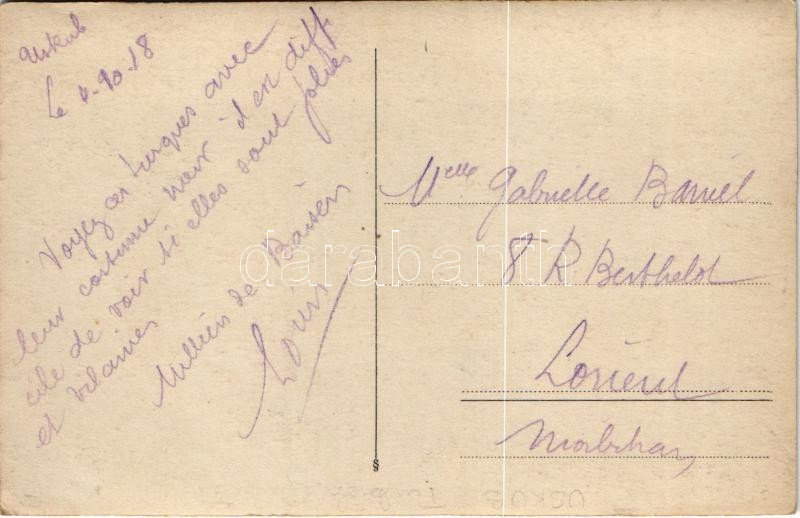 Uskub
Le 4-10-18
Voyez ces turques avec
leur costume noir d'en diffi
cile de voir si elles sont jolies
et vilaines
Milliers de Baisers
Louis
Melle Gabrielle Baniel
8 R. Berthelot
Lorient
Morbihan
darabanth
§
USKUB